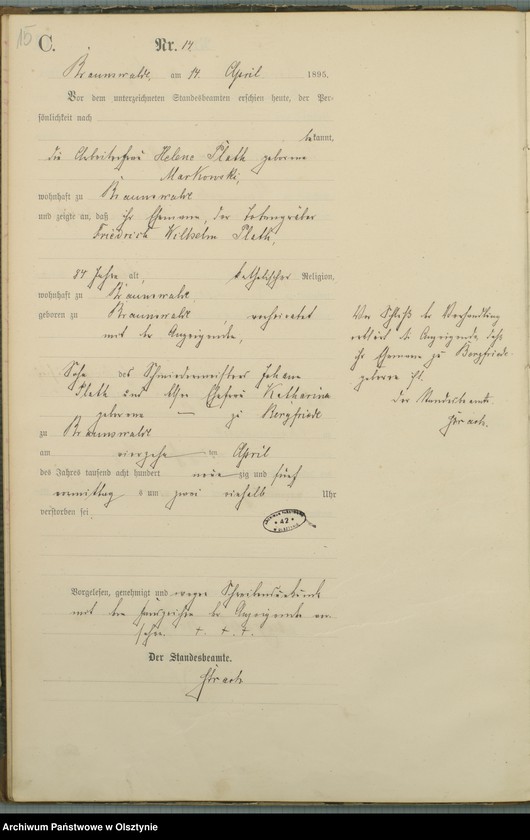 15
C.
Nr. 14
Braunswalde, am 14. April 1895.
Vor dem unterzeichneten Standesbeamten erschien heute, der Per-
sönlichkeit nach
bekannt,
die Arbeiterfrau Helene Plath geborene
Markowski,
wohnhaft zu Braunswalde
und zeigte an, daß ihr Ehemann, der Todtengräber
Friedrich Wilhelm Plath,
Jahre alt, katholischer Religion,
wohnhaft zu Braunswalde,
geboren zu Braunswalde, verheiratet
mit der Anzeigende,
Sohn des Schmiedemeisters Johann
Plath und dessen Ehefrau Katharina
geborene — zu Bergfriede
zu Braunswalde
am vierzehn ten April
des Jahres tausend acht hundert neun zig und fünf
vormittag s um zwei einhalb Uhr
verstorben sei.
Vorgelesen, genehmigt und wegen Schreibensunkunde
mit den Handzeichen der Anzeigenden ver-
sehen. + + +
Der Standesbeamte.
Vor Schluß der Verhandlung
erklärt die Anzeigende, daß
ihr Ehemann zu Bergfriede
geboren ist.
Der Standesbeamte
42
Archiwum Państwowe w Olsztynie